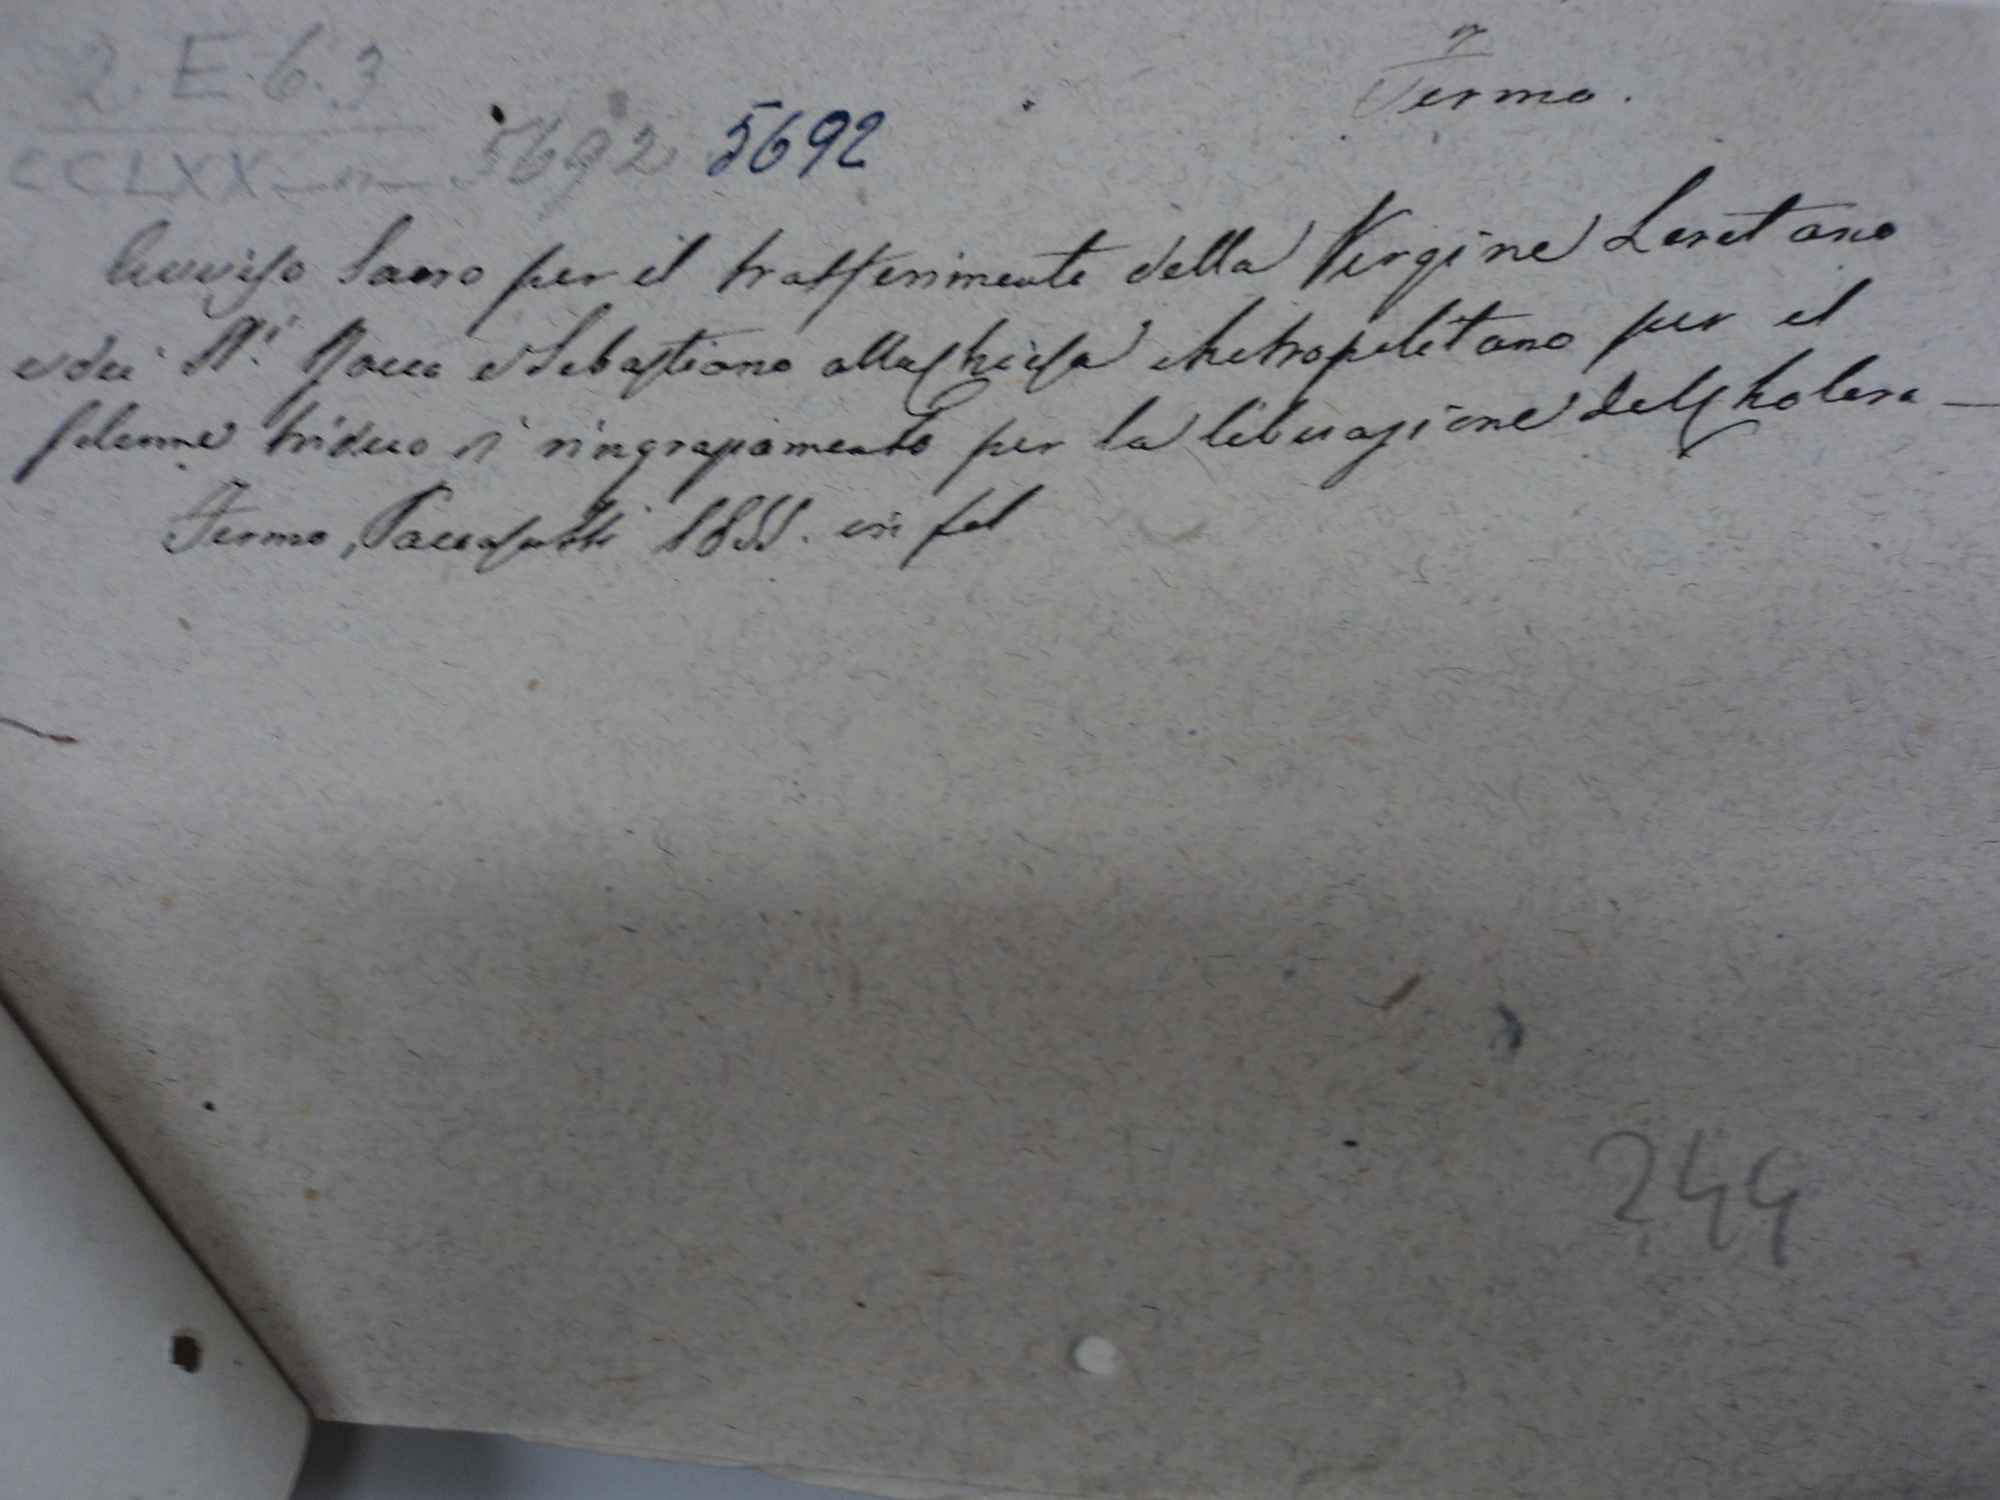 2. E. 6. 3
Fermo.
CCLXX 5692 5692
Avviso Sacro per il trasferimento della Vergine Lauretana
e dei SS.i Rocco e Sebastiano alla Chiesa Metropolitana per il
solenne triduo di ringraziamento per la liberazione del Cholera —
Fermo, Paccasassi 1855. in fol
244